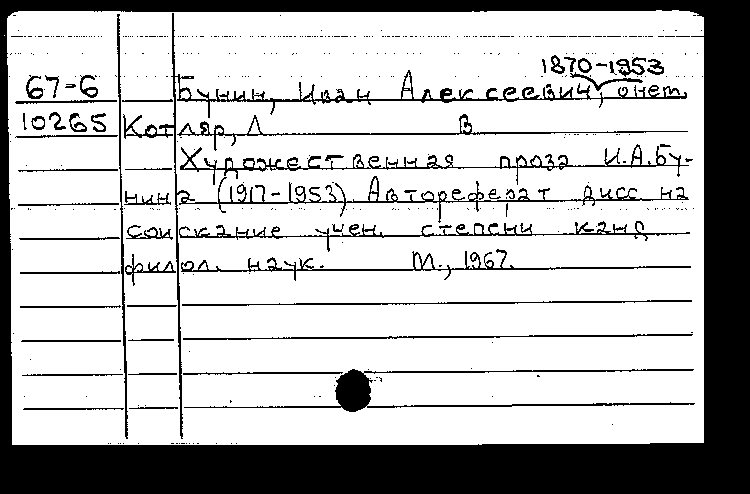 1870-1953
67-6 Бунин, Иван Алексеевич, о нем.
10265 Котляр, Л В
Художественная проза И.А.Бу-
нина (1917-1953). Автореферат дисс на
соискание учен. степени канд
филол. наук. М., 1967.